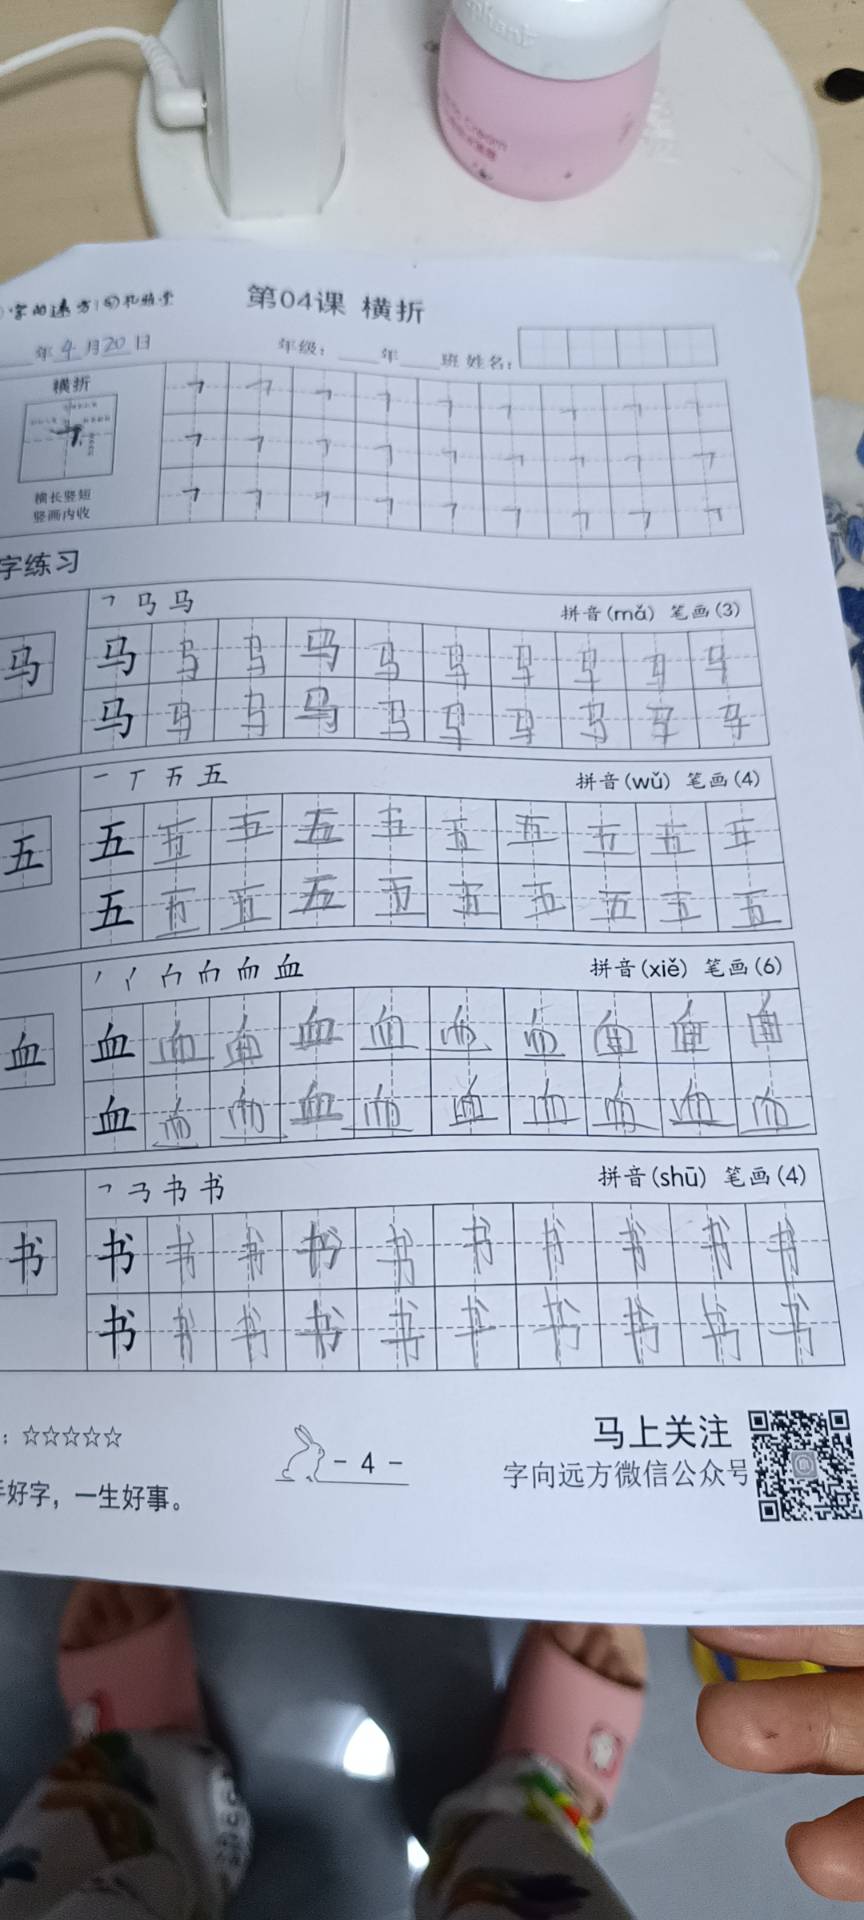 第04课 横折
年 4 月 20 日 年级： 年 班 姓名：
横折
横长竖短
竖画内收
字练习
㇕ 马 马
拼音(mǎ) 笔画(3)
马 马 马 马 马 马 马 马 马 马 马
马 马 马 马 马 马 马 马 马 马
一 丅 五 五
拼音(wǔ) 笔画(4)
五 五 五 五 五 五 五 五 五 五 五
五 五 五 五 五 五 五 五 五 五
血
拼音(xiě) 笔画(6)
血 血 血 血 血 血 血 血 血 血 血
血 血 血 血 血 血 血 血 血 血
㇕ 书 书
拼音(shū) 笔画(4)
书 书 书 书 书 书 书 书 书 书 书
书 书 书 书 书 书 书 书 书 书
：☆☆☆☆☆
- 4 -
马上关注
字向远方微信公众号
手好字，一生好事。